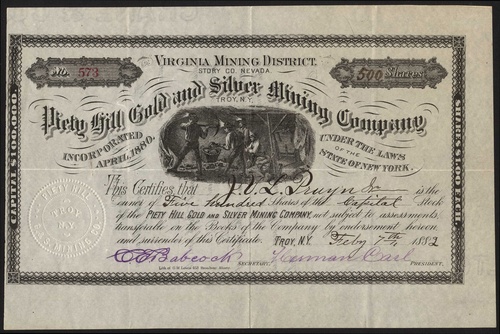 VIRGINIA MINING DISTRICT.
STORY CO. NEVADA.
No. 573
500 Shares
Piety Hill Gold and Silver Mining Company
TROY, N.Y.
INCORPORATED
APRIL, 1880.
UNDER THE LAWS
OF THE
STATE OF NEW YORK.
This Certifies, that J. V. L. Pruyn is the
owner of Five hundred Shares of the Capital Stock
of the PIETY HILL GOLD AND SILVER MINING COMPANY, not subject to assessments,
transferable on the Books of the Company by endorsement hereon
and surrender of this Certificate. TROY, N.Y. Feby 7th, 1882
Babcock SECRETARY. Herman PRESIDENT.
PIETY HILL
TROY
N.Y.
G. & S. MINING CO.
SHARES $100 EACH